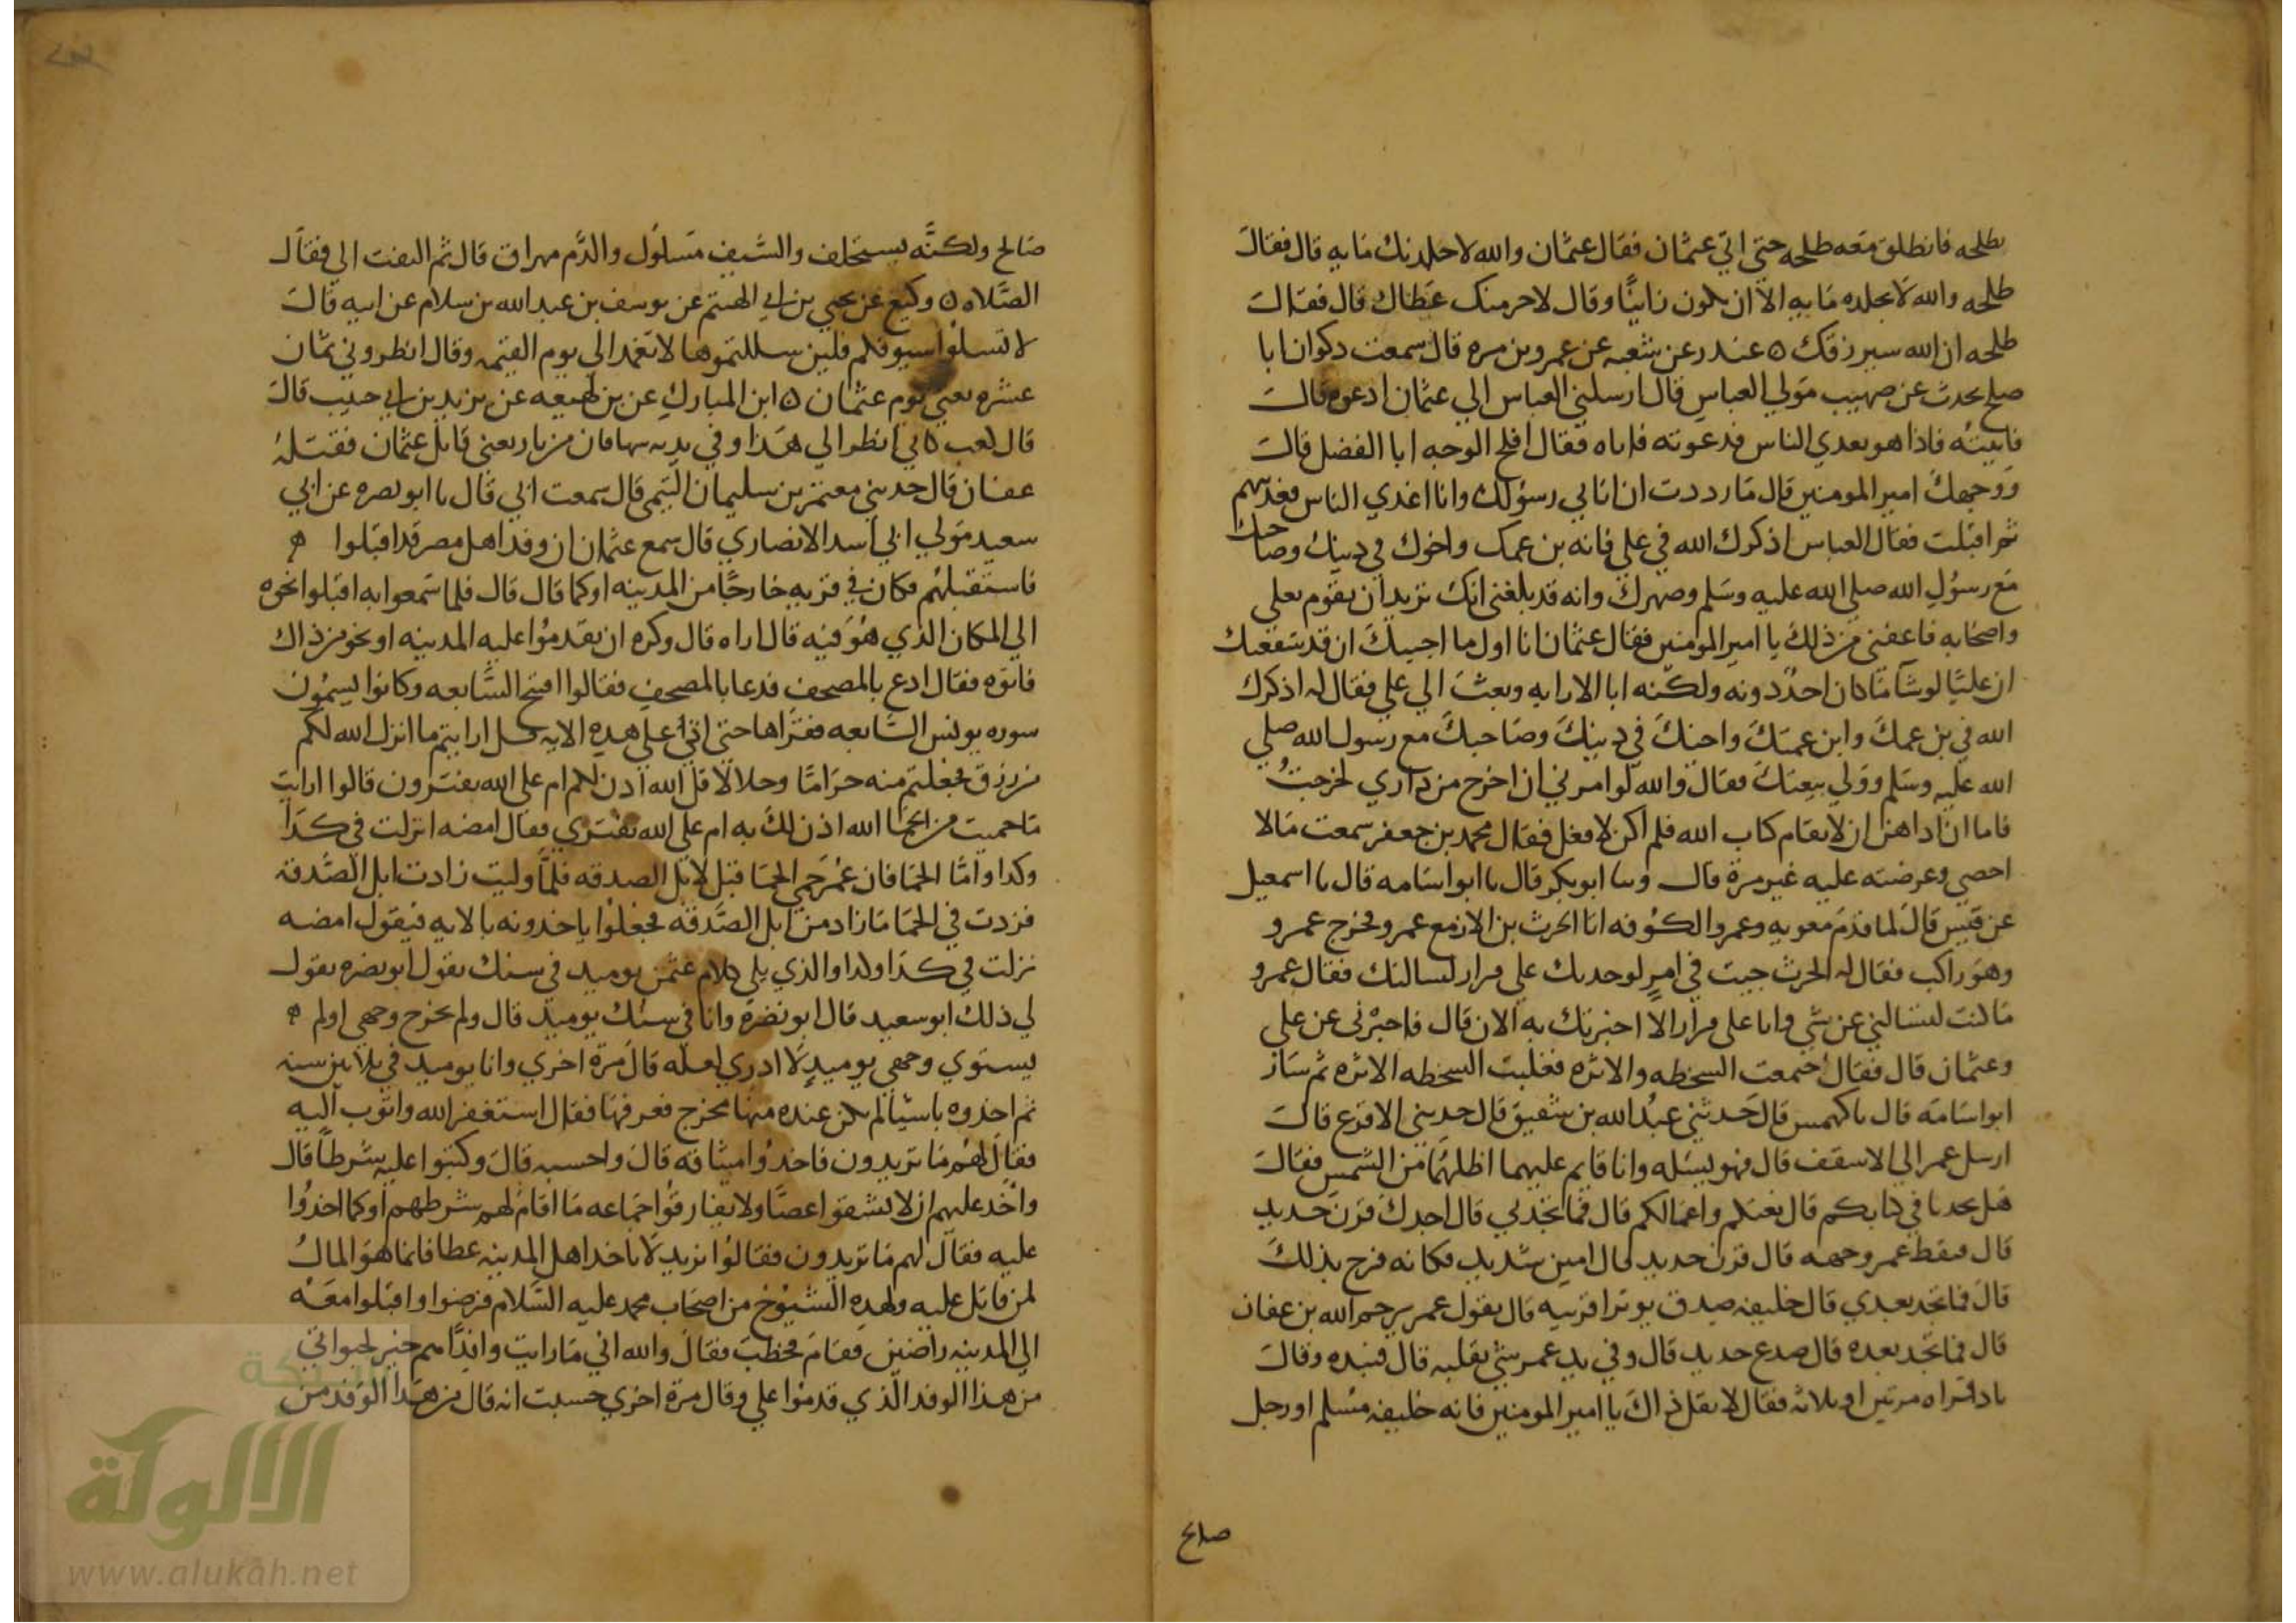 بطلحه فانطلق معه طلحه حتى اتى عثمان فقال عثمان والله لاجلدنك مايه قال فقال
طلحه والله لا تجلده مايه الا ان يكون زانيًا وقال لاحرمنك عطاك قال فقال
طلحه ان الله سيرزقك ٥ غندر عن شعبه عن عمرو بن مره قال سمعت ذكوان ابا
صلح يحدث عن صهيب مولي العباس قال ارسلني العباس الي عثمان ادعوه قال
فاتيته فاذا هو يغدي الناس فدعوته فاتاه فقال افلح الوجه ابا الفضل قال
ووجهك امير المومنين قال ما رددت ان اتاني رسولك وانا اغدي الناس فغديتهم
ثم اقبلت فقال العباس اذكرك الله في علي فانه بن عمك واخوك في دينك وصاحبك
مع رسول الله صلي الله عليه وسلم وصهرك وانه قد بلغني انك تريد ان تقوم بعلي
واصحابه فاعفني من ذلك يا امير المومنين فقال عثمان انا اول ما اجيبك ان قد شفعتك
ان عليًا لو شآ ما كان احدٌ دونه ولكنه ابا الا رايه وبعث الي علي فقال له اذكرك
الله في بن عمك وابن عمتك واخيك في دينك وصاحبك مع رسول الله صلي
الله عليه وسلم وولي بيعتك فقال والله لو امرني ان اخرج من داري لخرجت
فاما ان اداهن ان لا يقام كتاب الله فلم اكن لافعل فقال محمد بن جعفر سمعت مالا
احصي وعرضته عليه غير مرة قال وسا ابو بكر قال با ابو اسامه قال با اسمعيل
عن قيس قال لما قدم معويه وعمرو الكوفه اتا الحرث بن الازمع عمرو فخرج عمرو
وهو راكب فقال له الحرث جيت في امرٍ لو وجدتك علي قرار لسالتك فقال عمرو
ما كنت لتسالني عن شي وانا على قرار الا اخبرتك به الان قال فاخبرني عن علي
وعثمان قال فقال اجتمعت السخطه والاثره فغلبت السخطه الاثره ثم سار
ابو اسامه قال با كهمس قال حدثني عبد الله بن شقيق قال حدثني الاقرع قال
ارسل عمر الي الاسقف قال فهو يسله وانا قايم عليهما اظلهما من الشمس فقال
هل تجدنا في كتابكم قال نعتكم واعمالكم قال فما تجدني قال اجدك قرن حديد
قال فنقط عمر وجهه قال قرن حديد قال امين شديد فكانه فرح بذلك
قال فما تجد بعدي قال خليفه صدق يوثر اقربيه قال يقول عمر يرحم الله بن عفان
قال فما تجد بعده قال صدع حديد قال وفي يد عمر شي يقلبه قال فنبذه وقال
يا دفراه مرتين او ثلاثه فقال لا تقل ذاك يا امير المومنين فانه خليفه مسلم او رجل
صالح
صالح ولكنَّه يستخلف والسَّيف مسلول والدَّم مهراق قال ثم التفت الي فقال
الصَّلاه ٥ وكيع عن يحيي بن ابي الهيثم عن يوسف بن عبد الله بن سلام عن ابيه قال
لا تسلوا سيوفكم فلين سللتموها لا تغمد الي يوم القيمه وقال انظروني ثمان
عشره يعني يوم عثمان ٥ ابن المبارك عن بن لهيعه عن يزيد بن ابي حبيب قال
قال كعب كاني انظر الي هذا وفي يديه شهابان من نار يعني قاتل عثمان فقتله
عفان قال حدثني معتمر بن سليمان التيمي قال سمعت ابي قال با ابو نضره عن ابي
سعيد مولي ابي اسد الانصاري قال سمع عثمان ان وفد اهل مصر قد اقبلوا
فاستقبلهم فكان في قريه خارجًا من المدينه او كما قال قال فلما سمعوا به اقبلوا نحوه
الي المكان الذي هو فيه قال اراه قال وكره ان يقدموا عليه المدينه او نحو من ذاك
فاتوه فقال ادع بالمصحف فدعا بالمصحف فقالوا افتح السَّابعه وكانوا يسمون
سوره يونس السَّابعه فقراها حتى اتى علي هذه الايه قل ارايتم ما انزل الله لكم
من رزق فجعلتم منه حرامًا وحلالا قل الله اذن لكم ام علي الله تفترون قالوا ارايت
ما حميت من الحما الله اذن لك به ام علي الله تفتري فقال امضه انزلت في كذا
وكذا واما الحما فان عمر حمي الحما قبل لابل الصدقه فلمَّا وليت زادت ابل الصَّدقه
فزدت في الحما ما زاد من ابل الصَّدقه فجعلوا ياخذونه بالايه فيقول امضه
نزلت في كذا وكذا والذي يلي كلام عثمن يوميد في سنك يقول ابو نضره يقول
لي ذلك ابو سعيد قال ابو نضرة وانا في سنك يوميد قال ولم يخرج وجهي او لم
يستوي وجهي يوميدٍ لا ادري لعله قال مرة اخري وانا يوميد في ثلاثين سنه
ثم اخذوه باشيا لم يكن عنده منها مخرج فعرفها فقال استغفر الله واتوب اليه
فقال لهم ما تريدون فاخذوا ميثاقه قال واحسبه قال وكتبوا عليه شرطًا قال
واخذ عليهم ان لا يشقوا عصًا ولا يفارقوا جماعه ما اقام لهم شرطهم او كما اخذوا
عليه فقال لهم ما تريدون فقالوا نريد لا ياخذ اهل المدينه عطا فانما هو المال
لمن قاتل عليه ولهذه الشيوخ من اصحاب محمد عليه السَّلام فرضوا واقبلوا معه
الي المدينه راضين فقام فخطب فقال والله اني ما رايت وافدًا هم خير
من هذا الوفد الذي قدموا علي وقال مرة اخري حسبت انه قال من هذا الوفد من
شبكة
الألوكة
www.alukah.net